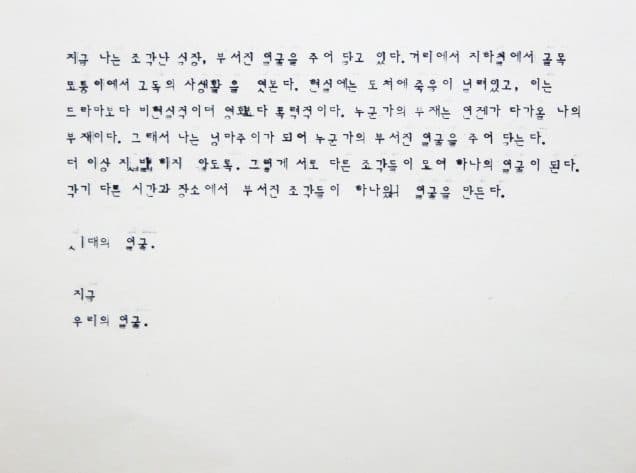 지금 나는 조각난 심장, 부서진 얼굴을 주어 담고 있다. 거리에서 지하철에서 골목
모퉁이에서 고독의 사생활 을 엿본다. 현실에는 도처에 죽음이 널려있고, 이는
드라마보다 비현실적이며 영화보다 폭력적이다. 누군가의 부재는 언젠가 다가올 나의
부재이다. 그래서 나는 넝마주이가 되어 누군가의 부서진 얼굴을 주어 담는다.
더 이상 하지 않도록. 그렇게 서로 다른 조각들이 모여 하나의 얼굴이 된다.
각기 다른 시간과 장소에서 부서진 조각들이 하나의 얼굴을 만든다.
시대의 얼굴.
지금
우리의 얼굴.